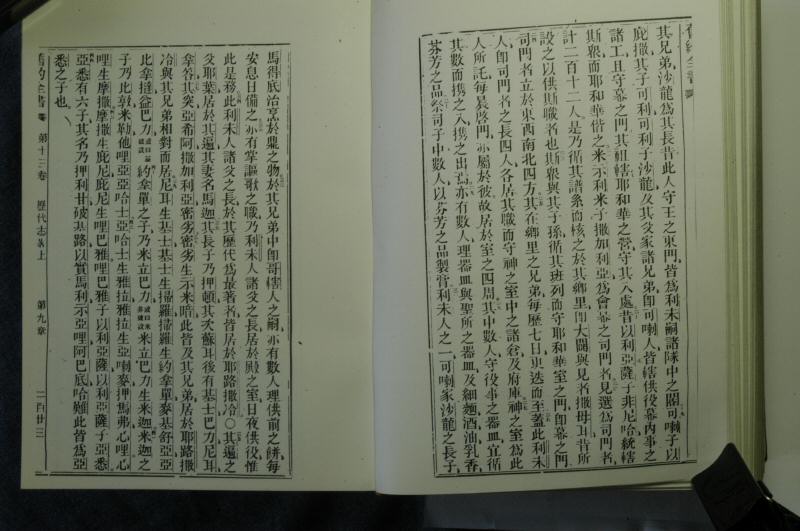 舊約全書
其兄弟沙龍爲其長昔此人守王之東門皆爲利未嗣諸隊中之閽可喇子以
庇撒其子可利可利子沙龍及其父家諸兄弟卽可喇人皆轄供役幕內事之
諸工且守幕之門其祖轄耶和華之營守其入處昔以利亞薩子非尼哈統轄
斯輩而耶和華偕之米示利米子撒加利亞爲會幕之司門者見選爲司門者
計二百十二人是乃循其譜系而核之於其鄉里卽大闢與見者撒母耳昔所
設之以供斯職者也斯輩與其子孫循其班列而守耶和華室之門卽幕之門
司門者立於東西南北四方其在鄉里之兄弟每歷七日更迭而至蓋此利未
人卽司門者之長四人各居其職而守神之室中之諸倉及府庫神之室爲此
人所託每晨啓門亦屬於彼故居於室之四周其中數人守役事之器皿宜循
其數而携之入携之出亦有數人理器皿與聖所之器皿及細麵酒油乳香
芬芳之品祭司子中數人以芬芳之品製膏利未人之一可喇家沙龍之長子
馬得底治烹於鼎之物於其兄弟中卽哥轄人之嗣亦有數人理供前之餅每
安息日備之亦有掌謳歌之職乃利未人諸父之長居於殿之室日夜供役惟
此是務此利未人諸父之長於其歷代爲最著者皆居於耶路撒冷○其遍之
父耶葉居於其遍其妻名馬迦其長子乃押頓其次蘇耳後有基士巴力尼耳
拿答其突亞希阿撒加利亞密劣密劣生示米暗此皆及其兄弟居於耶路撒
冷與其兄弟相對而居尼耳生基士基士生掃羅掃羅生約拿單麥基舒亞亞
比拿撻益巴力約拿單之子乃米立巴力米立巴力生米迦米迦之
子乃比敦米勒他哩亞亞哈士亞哈士生雅拉雅拉生亞喇麥押馬弗心哩心
哩生摩撒摩撒生庇尼庇尼生哩巴雅哩巴雅子以利亞薩以利亞薩子亞悉
亞悉有六子其名乃押利甘破基路以實馬利示亞哩阿巴底哈難此皆爲亞
悉之子也
舊約全書 第十三卷 歷代志畧上 第九章 二百廿三